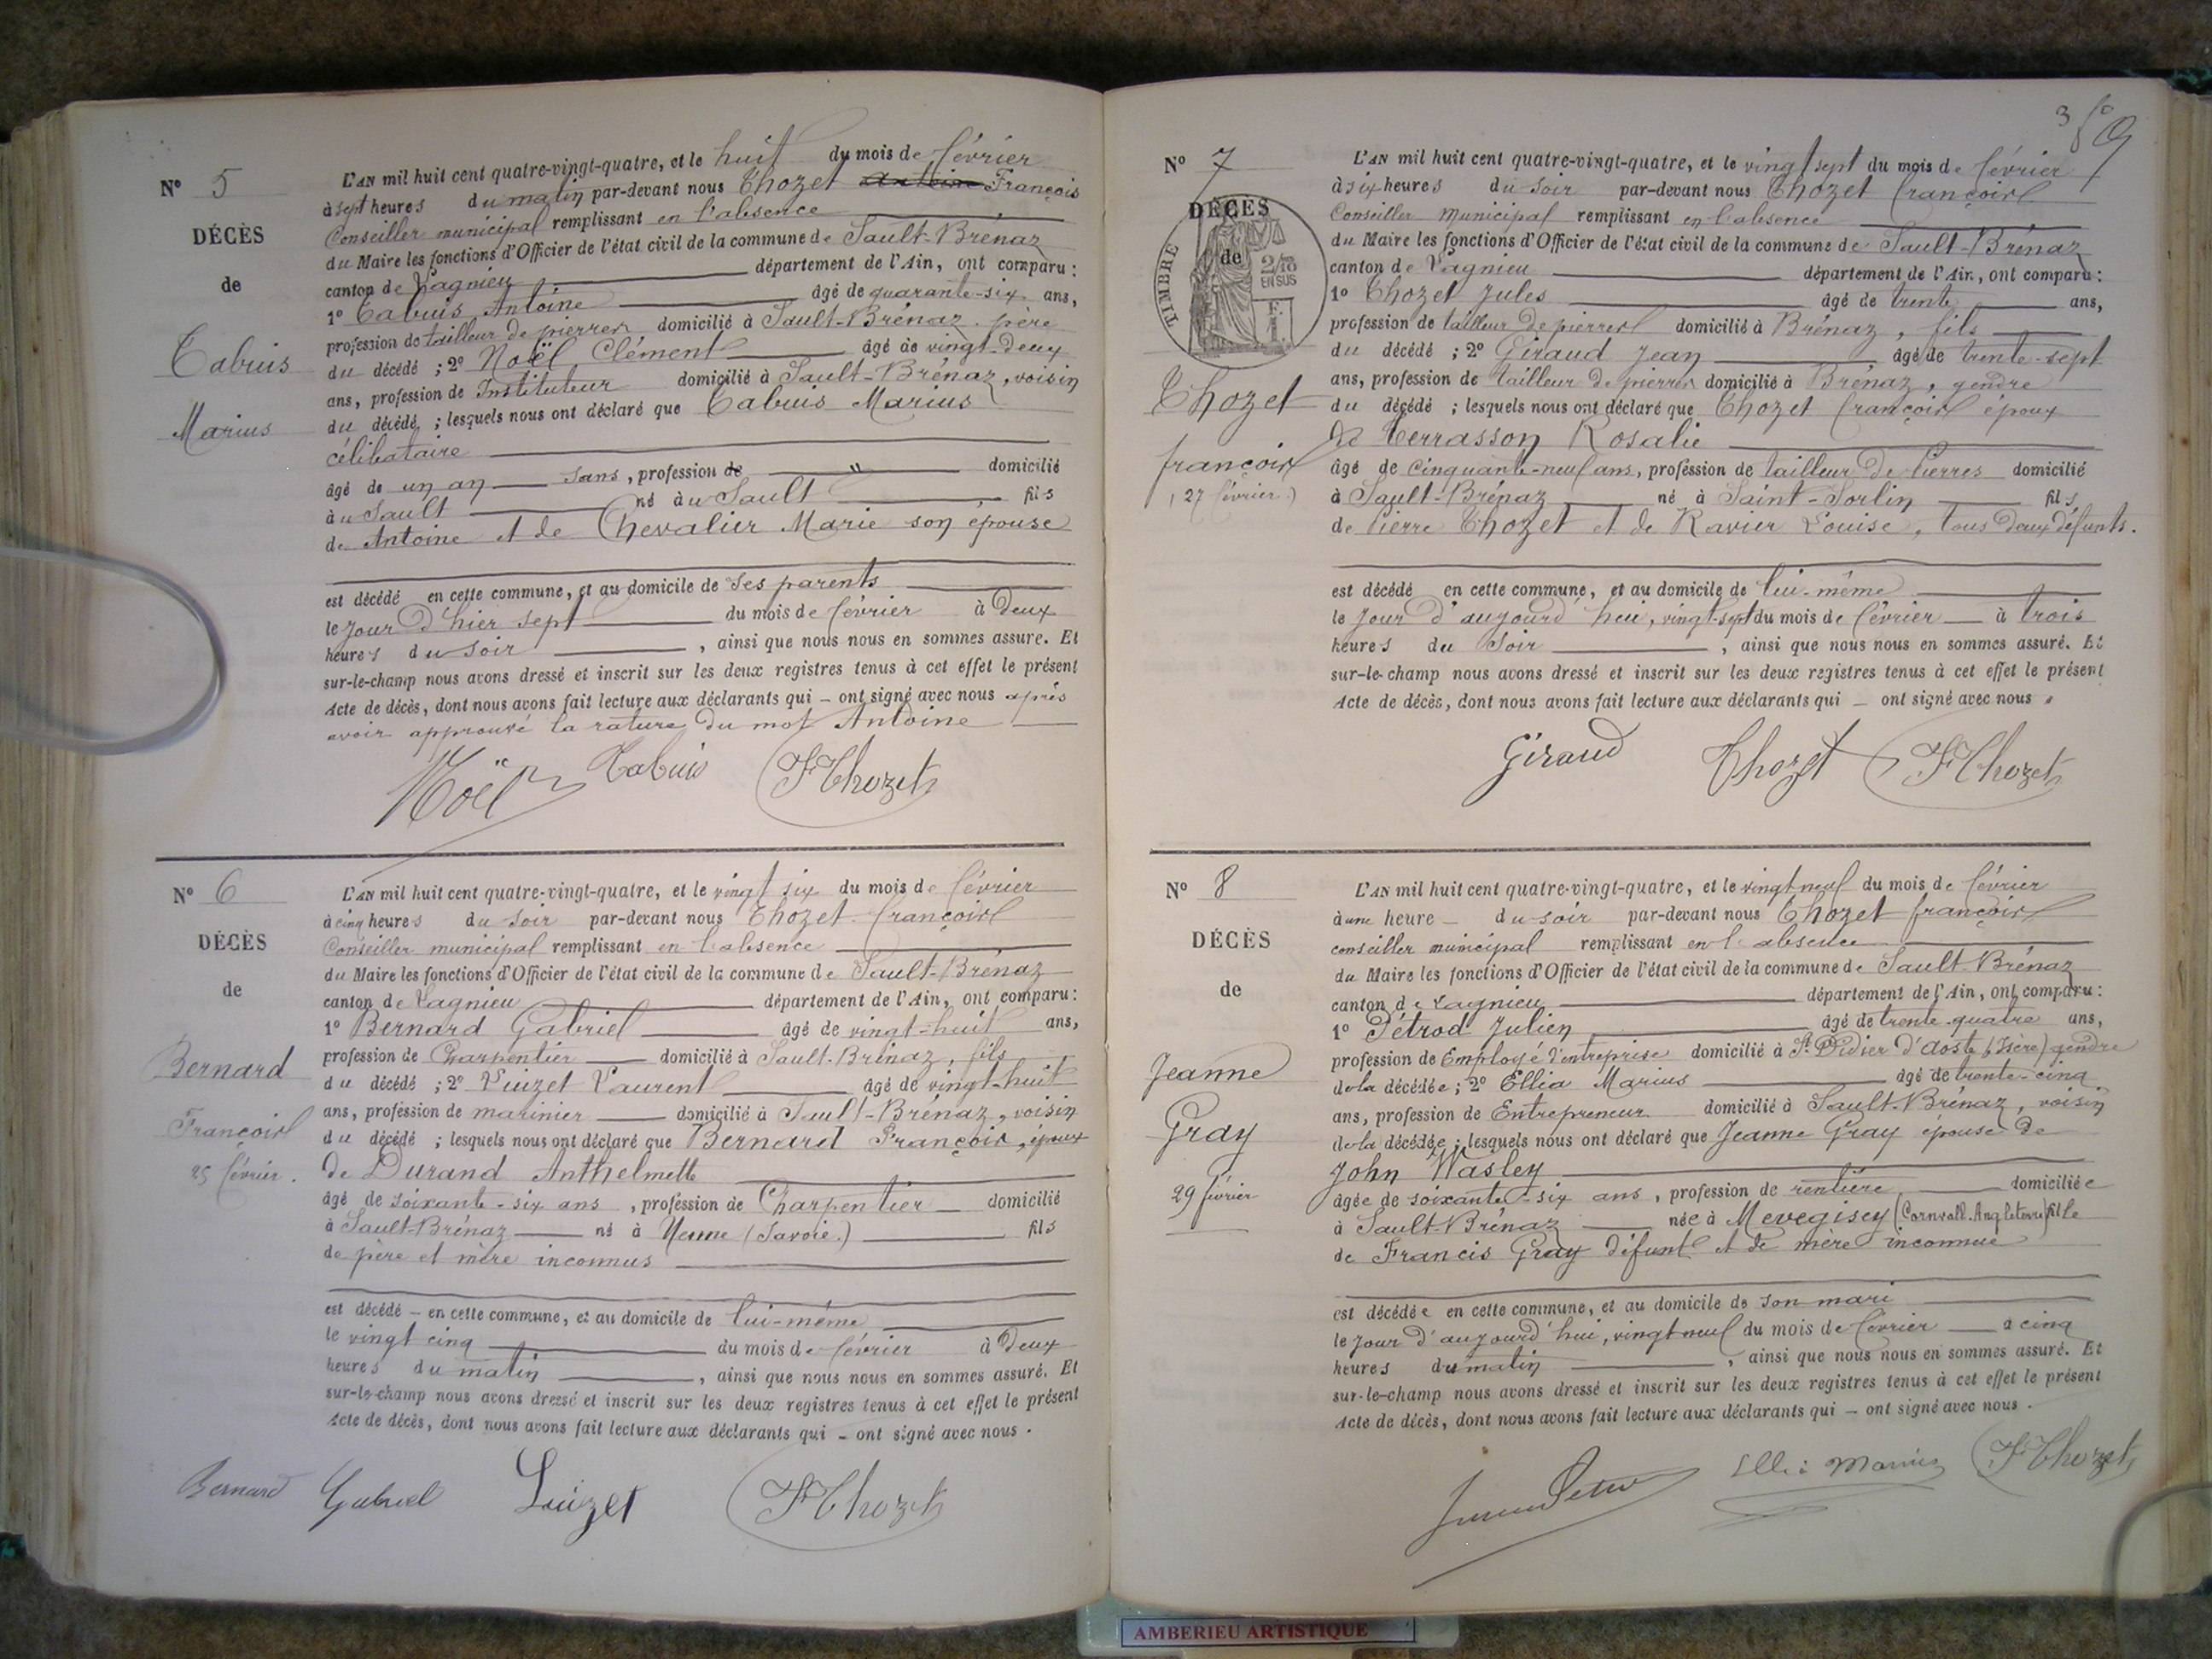 N° 5
DÉCÈS
de
Cabuis
Marius
L'AN mil huit cent quatre-vingt-quatre, et le huit du mois de février
à sept heures du matin par-devant nous Thozet Antoine François
Conseiller municipal remplissant en l'absence
du Maire les fonctions d'Officier de l'état civil de la commune de Sault-Brénaz
canton de Lagnieu département de l'Ain, ont comparu :
1° Cabuis Antoine âgé de quarante-six ans,
profession de tailleur de pierres domicilié à Sault-Brénaz, père
du décédé ; 2° Noël Clément âgé de vingt-deux
ans, profession de Instituteur domicilié à Sault-Brénaz, voisin
du décédé ; lesquels nous ont déclaré que Cabuis Marius
célibataire
âgé de un an sans, profession de " domicilié
à u Sault né à u Sault fils
de Antoine et de Chevalier Marie son épouse
est décédé en cette commune, et au domicile de ses parents
le jour d'hier sept du mois de février à deux
heures du soir , ainsi que nous nous en sommes assuré. Et
sur-le-champ nous avons dressé et inscrit sur les deux registres tenus à cet effet le présent
Acte de décès, dont nous avons fait lecture aux déclarants qui – ont signé avec nous après
avoir approuvé la rature du mot Antoine
Noël Cabuis F Thozet
N° 6
DÉCÈS
de
Bernard
François
25 février.
L'AN mil huit cent quatre-vingt-quatre, et le vingt six du mois de février
à cinq heures du soir par-devant nous Thozet François
Conseiller municipal remplissant en l'absence
du Maire les fonctions d'Officier de l'état civil de la commune de Sault-Brénaz
canton de Lagnieu département de l'Ain, ont comparu :
1° Bernard Gabriel âgé de vingt-huit ans,
profession de Charpentier domicilié à Sault-Brénaz, fils
du décédé ; 2° Luizet Laurent âgé de vingt-huit
ans, profession de marinier domicilié à Sault-Brénaz, voisin
du décédé ; lesquels nous ont déclaré que Bernard François, époux
de Durand Anthelmette
âgé de soixante-six ans, profession de Charpentier domicilié
à Sault-Brénaz né à Yenne (Savoie.) fils
de père et mère inconnus
est décédé – en cette commune, et au domicile de lui-même
le vingt cinq du mois de février à deux
heures du matin , ainsi que nous nous en sommes assuré. Et
sur-le-champ nous avons dressé et inscrit sur les deux registres tenus à cet effet le présent
Acte de décès, dont nous avons fait lecture aux déclarants qui – ont signé avec nous.
Bernard Gabriel Luizet F Thozet
N° 7
DÉCÈS
de
TIMBRE
2/10
EN SUS
F.
1.
Thozet
françois
(27 février.)
L'AN mil huit cent quatre-vingt-quatre, et le vingt sept du mois de février
à six heures du soir par-devant nous Thozet François
Conseiller municipal remplissant en l'absence
du Maire les fonctions d'Officier de l'état civil de la commune de Sault-Brénaz
canton de Lagnieu département de l'Ain, ont comparu :
1° Thozet Jules âgé de trente ans,
profession de tailleur de pierres domicilié à Brénaz, fils
du décédé ; 2° Giraud Jean âgé de trente-sept
ans, profession de tailleur de pierres domicilié à Brénaz, gendre
du décédé ; lesquels nous ont déclaré que Thozet François époux
de Terrasson Rosalie
âgé de cinquante-neuf ans, profession de tailleur de Pierres domicilié
à Sault-Brénaz né à Saint-Sorlin fils
de Pierre Thozet et de Ravier Louise, tous deux défunts.
est décédé en cette commune, et au domicile de lui-même
le jour d'aujourd'hui, vingt-sept du mois de février à trois
heures du soir , ainsi que nous nous en sommes assuré. Et
sur-le-champ nous avons dressé et inscrit sur les deux registres tenus à cet effet le présent
Acte de décès, dont nous avons fait lecture aux déclarants qui – ont signé avec nous.
Giraud Thozet F Thozet
N° 8
DÉCÈS
de
Jeanne
Gray
29 février
L'AN mil huit cent quatre-vingt-quatre, et le vingt neuf du mois de février
à une heure – du soir par-devant nous Thozet françois
conseiller municipal remplissant en l'absence
du Maire les fonctions d'Officier de l'état civil de la commune de Sault-Brénaz
canton de Lagnieu département de l'Ain, ont comparu :
1° Pétrod Julien âgé de trente-quatre ans,
profession de Employé d'entreprise domicilié à St Didier d'Aoste (Isère) gendre
de la décédée ; 2° Ellia Marius âgé de trente-cinq
ans, profession de Entrepreneur domicilié à Sault-Brénaz, voisin
de la décédée ; lesquels nous ont déclaré que Jeanne Gray épouse de
John Wasley
âgée de soixante-six ans, profession de rentière domiciliée
à Sault-Brénaz née à Mevegisey (Cornvall. Angleterre) fille
de Francis Gray défunt et de mère inconnue
est décédée en cette commune, et au domicile de son mari
le jour d'aujourd'hui, vingt neuf du mois de février à cinq
heures du matin , ainsi que nous nous en sommes assuré. Et
sur-le-champ nous avons dressé et inscrit sur les deux registres tenus à cet effet le présent
Acte de décès, dont nous avons fait lecture aux déclarants qui – ont signé avec nous.
Ellia Marius F Thozet
AMBERIEU ARTISTIQUE